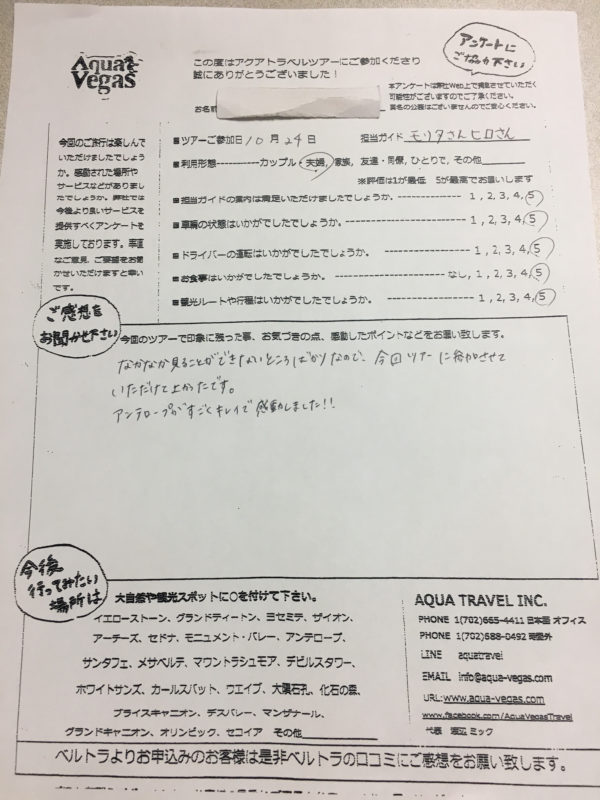 Aqua Vegas
この度はアクアトラベルツアーにご参加くださり
誠にありがとうございました！
アンケートに
ご協力下さい
本アンケートは弊社Web上で掲載させていただく
可能性がございますのでご了承ください。
実名の公表はございませんのでご安心ください。
お名前
今回のご旅行は楽しんで
いただけましたでしょう
か。感動された場所や
サービスなどがありまし
たでしょうか。弊社では
今後より良いサービスを
提供すべくアンケートを
実施しております。率直
なご意見、ご要望をお聞
かせいただけますと幸い
です。
■ツアーご参加日 10月24日 担当ガイド モリタさんヒロさん
■利用形態------------カップル・夫婦, 家族, 友達・同僚, ひとりで, その他
※評価は1が最低 5が最高でお願いします
■担当ガイドの案内は満足いただけましたでしょうか。---------- 1, 2, 3, 4, 5
■車輌の状態はいかがでしたでしょうか。-------------------- 1, 2, 3, 4, 5
■ドライバーの運転はいかがでしたでしょうか。-------------- 1, 2, 3, 4, 5
■お食事はいかがでしたでしょうか。-------------------- なし, 1, 2, 3, 4, 5
■観光ルートや行程はいかがでしたでしょうか。-------------- 1, 2, 3, 4, 5
ご感想を
お聞かせ下さい
今回のツアーで印象に残った事、お気づきの点、感動したポイントなどをお願い致します。
なかなか見ることができないところばかりなので、今回ツアーに参加させて
いただけて上かったです。
アンテロープがすごくキレイで感動しました!!
今後
行ってみたい
場所は
大自然や観光スポットに○を付けて下さい。
イエローストーン、グランドティートン、ヨセミテ、ザイオン、
アーチーズ、セドナ、モニュメント・バレー、アンテロープ、
サンタフェ、メサベルデ、マウントラシュモア、デビルスタワー、
ホワイトサンズ、カールスバット、ウエイブ、大隕石孔、化石の森、
ブライスキャニオン、デスバレー、マンザナール、
グランドキャニオン、オリンピック、セコイア その他
AQUA TRAVEL INC.
PHONE 1(702)665-4411 日本語 オフィス
PHONE 1(702)688-0492 時間外
LINE aquatravel
EMAIL info@aqua-vegas.com
URL:www.aqua-vegas.com
www.facebook.com/AquaVegasTravel
代表 渡辺 ミック
ベルトラよりお申込みのお客様は是非ベルトラの口コミにご感想をお願い致します。